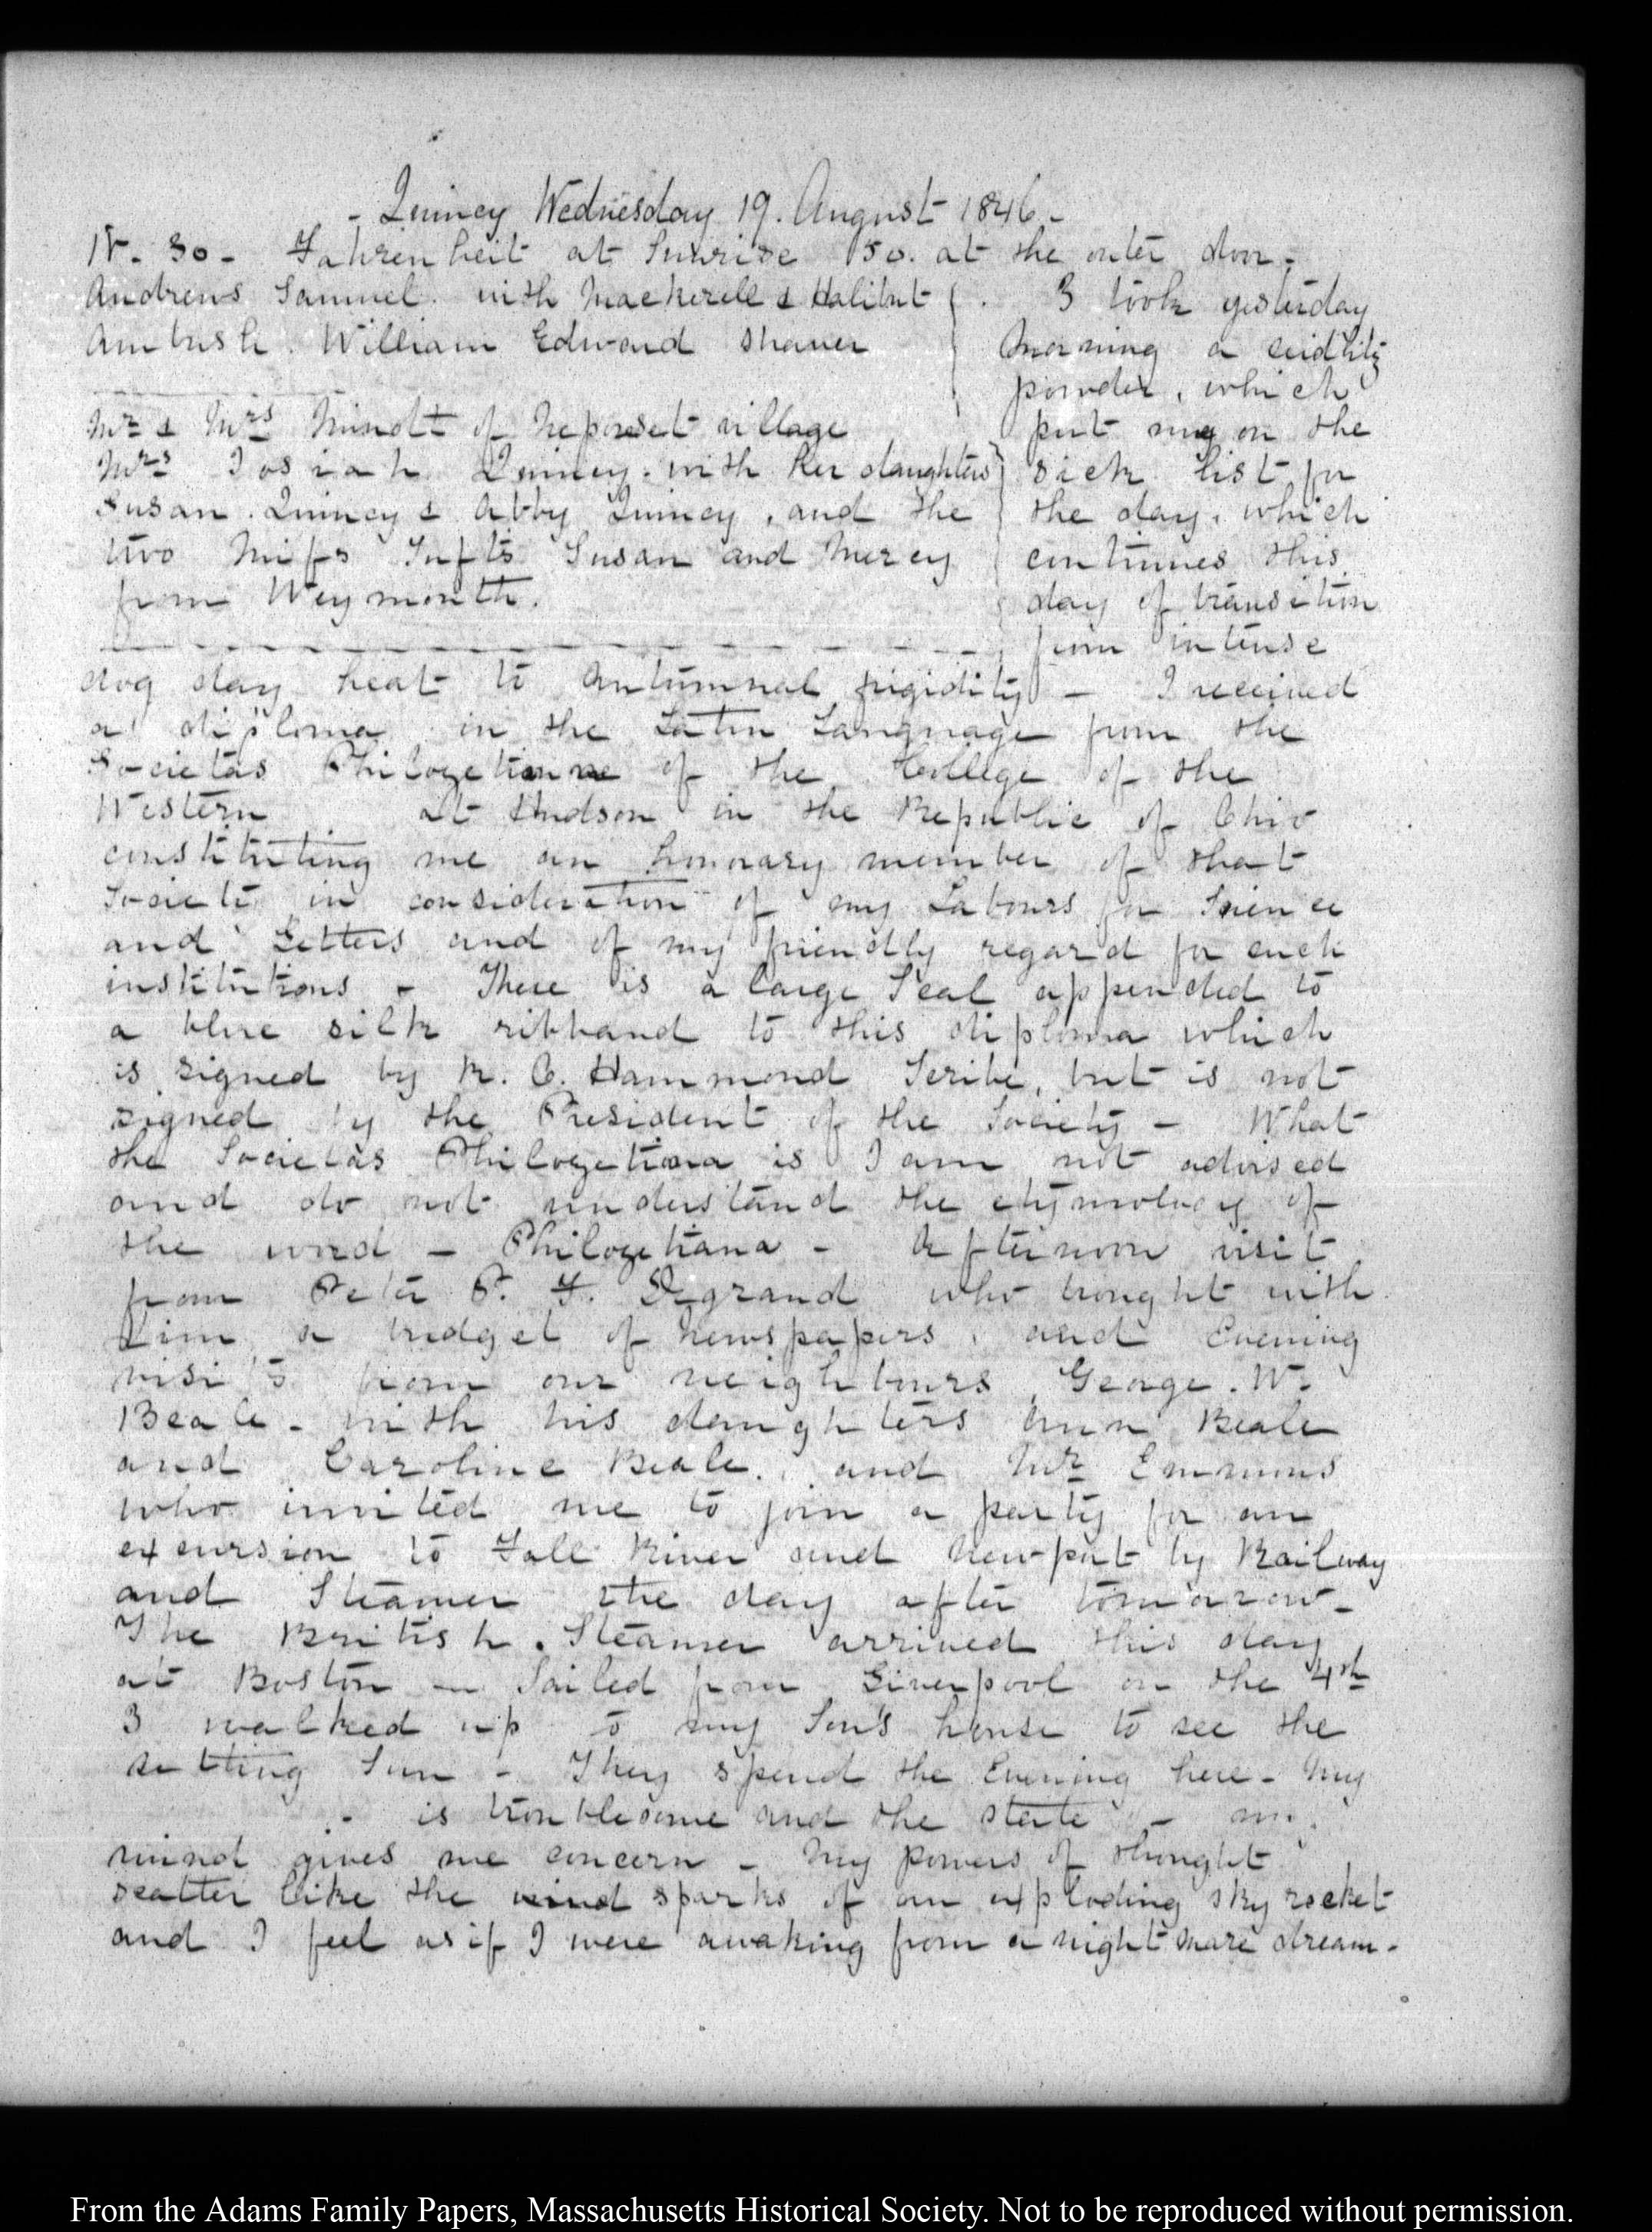 - Quincy Wednesday 19. August 1846 -
IV. 30 - Fahrenheit at Sunrise 50. at the outer door.
Andrews Samuel. with Mackerell & Halibut
Ambush. William Edward shaver
Mr & Mrs Minott of Neponset village
Mrs Josiah Quincy. with her daughters
Susan Quincy & Abby Quincy, and the
two Miss Tufts Susan and Mercy
from Weymouth.
I took yesterday
morning a seidlitz
powder, which
put me on the
sick list for
the day, which
continues this
day of transition
from intense
dog day heat to Autumnal frigidity - I received
a diploma in the Latin Language from the
Societas Philozetianae of the College of the
Western at Hudson in the Republic of Ohio
constituting me an honorary member of that
Society in consideration of my Labours for Science
and Letters and of my friendly regard for such
institutions - There is a large Seal appended to
a blue silk ribband to this diploma which
is signed by K. C. Hammond Scribe, but is not
signed by the President of the Society - What
the Societas Philozetiana is I am not advised
and do not understand the etymology of
the word - Philozetiana - Afternoon visit
from Peter P. F. Degrand who brought with
him a budget of Newspapers, and Evening
visits from our neighbours, George. W.
Beale. with his daughters Ann Beale
and Caroline Beale., and Mr Emmons
who invited me to join a party for an
excursion to Fall River and Newport by Railway
and Steamer the day after tomorrow -
The British Steamer arrived this day
at Boston - Sailed from Liverpool on the 4th
I walked up to my Son's house to see the
setting Sun - They spend the Evening here - My
is troublesome and the state - my
mind gives me concern - My powers of thought
scatter like the sparks of an exploding sky rocket
and I feel as if I were awaking from a night mare dream -
From the Adams Family Papers, Massachusetts Historical Society. Not to be reproduced without permission.